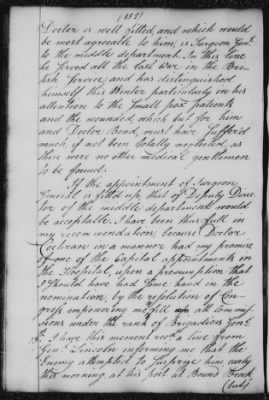 (152)
Doctor is well fitted, and which would
be most agreeable to him, is Surgeon Genl.
to the middle department. In this line
he served all the last War in the Bre-
tish Service, and has distinguished
himself this Winter particularly in his
attention to the Small pox patients
and the wounded, which but for him
and Doctor Bond, must have suffer'd
much, if not been totally neglected, as
there were no other medical gentlemen
to be found.
If the appointment of Surgeon
General is filled up, that of Deputy Direc-
tor of the middle department would
be acceptable. I have been thus full in
my recommendation because Doctor
Cochran in a manner had my promise
of one of the Capital appointments in
the Hospital, upon a presumption that
I should have had some hand in the
nomination, by the resolution of Con-
gress empowering me to fill up all commis-
sions under the rank of Brigadiers Genl.
I have this moment recd. a line from
Genl. Lincoln informing me that the
Enemy attempted to surprize him early
this morning at his post at Bound Brook
(but)